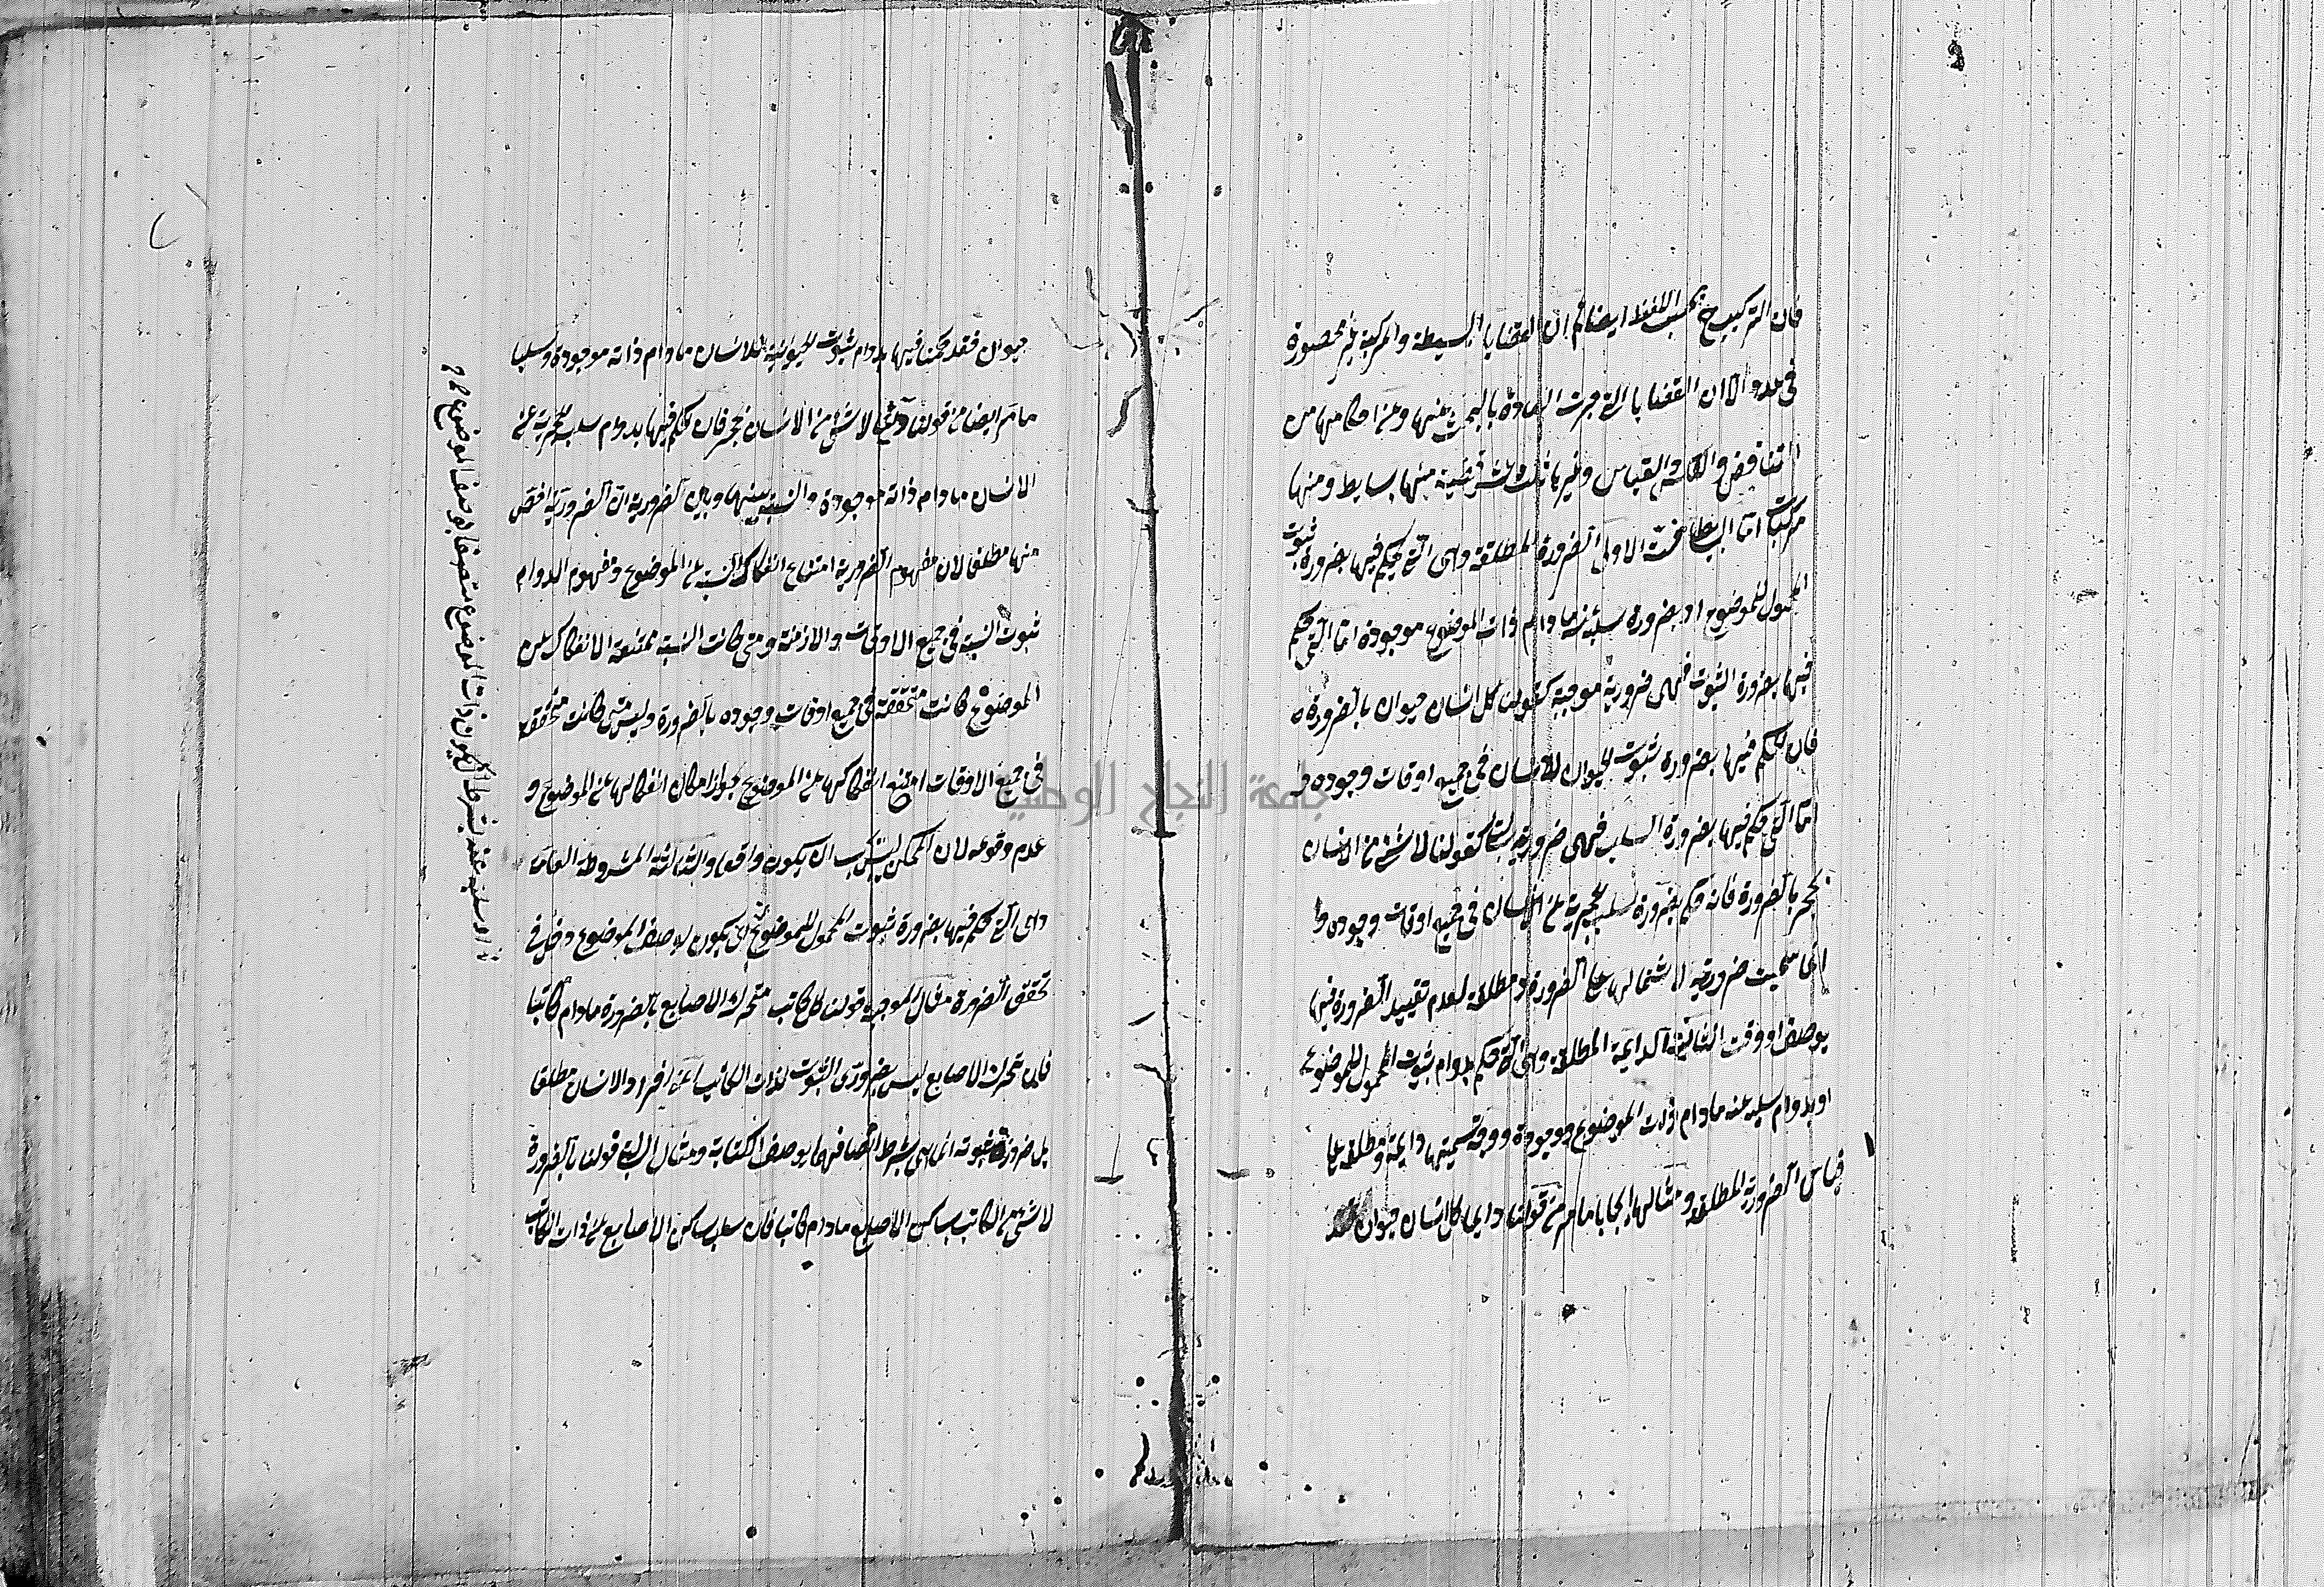 فان التركيب ح بحسب اللفظ ايضا ثم ان القضايا البسيطة والمركبة غير محصورة
في عدد الا ان القضايا التي جرت العادة بالبحث عنها وعن احكامها من
التناقض والعكس والقياس وغيرها ثلث عشر قضية منها بسايط ومنها
مركبات اما البسايط فست الاولى الضرورة المطلقة وهى التي يحكم فيها بضرورة ثبوت
المحمول للموضوع او بضرورة سلبه عنه مادام ذات الموضوع موجودة اما التى حكم
فيها بضرورة الثبوت فهى ضرورية موجبة كقولنا كل انسان حيوان بالضرورة
فان الحكم فيها بضرورة ثبوت الحيوان للانسان في جميع اوقات وجوده و
اما التى حكم فيها بضرورة السلب فهى ضرورية سالبة كقولنا لا شئ من الانسان
بحجر بالضرورة فانه حكم بضرورة سلب الحجرية عن الانسان في جميع اوقات وجوده و
انما سميت ضرورية لاشتمالها على الضرورة ومطلقة لعدم تقييد الضرورة فيها
بوصف او وقت الثانية الدايمة المطلقة وهى التي حكم بدوام ثبوت المحمول للموضوع
او بدوام سلبه عنه مادام ذات الموضوع موجودة ووجه تسميتها دايمة ومطلقة على
قياس الضرورية المطلقة ومثالها ايجابا ما مر من قولنا دايما كل انسان حيوان
حيوان فقد حكمنا فيها بدوام ثبوت الحيوانية للانسان مادام ذاته موجودة وسلبا
ما مر ايضا من قولنا دائما لا شئ من الانسان بحجر فان الحكم فيها بدوام سلب الحجرية عن
الانسان مادام ذاته موجودة والنسبة بينها وبين الضرورية ان الضرورية اخص
منها مطلقا لان مفهوم الضرورية امتناع انفكاك النسبة عن الموضوع ومفهوم الدوام
ثبوت النسبة في جميع الاوقات والازمنة ومتى كانت النسبة ممتنعة الانفكاك عن
الموضوع كانت متحققة في جميع اوقات وجوده بالضرورة وليس متى كانت متحققة
في جميع الاوقات امتنع انفكاكها عن الموضوع لجواز امكان انفكاكها عن الموضوع و
عدم وقوعه لان الممكن ليس يجب ان يكون واقعا والثالثة المشروطة العامة
وهى التي حكم فيها بضرورة ثبوت المحمول للموضوع اى يكون لوصف الموضوع دخل في
تحقق الضرورة مثال الموجبة قولنا كل كاتب متحرك الاصابع بالضرورة مادام كاتبا
فان تحرك الاصابع ليس بضرورى الثبوت لذات الكاتب اعنى افراد الانسان مطلقا
بل ضرورة ثبوته انما هى بشرط اتصافها بوصف الكتابة ومثال السالبة قولنا بالضرورة
لا شئ من الكاتب بساكن الاصابع مادام كاتبا فان سلب ساكن الاصابع عن ذات الكاتب
او سلبه عنه بشرط ان يكون ذات الموضوع متصفا بوصف الموضوع
جامعة النجاح الوطنية